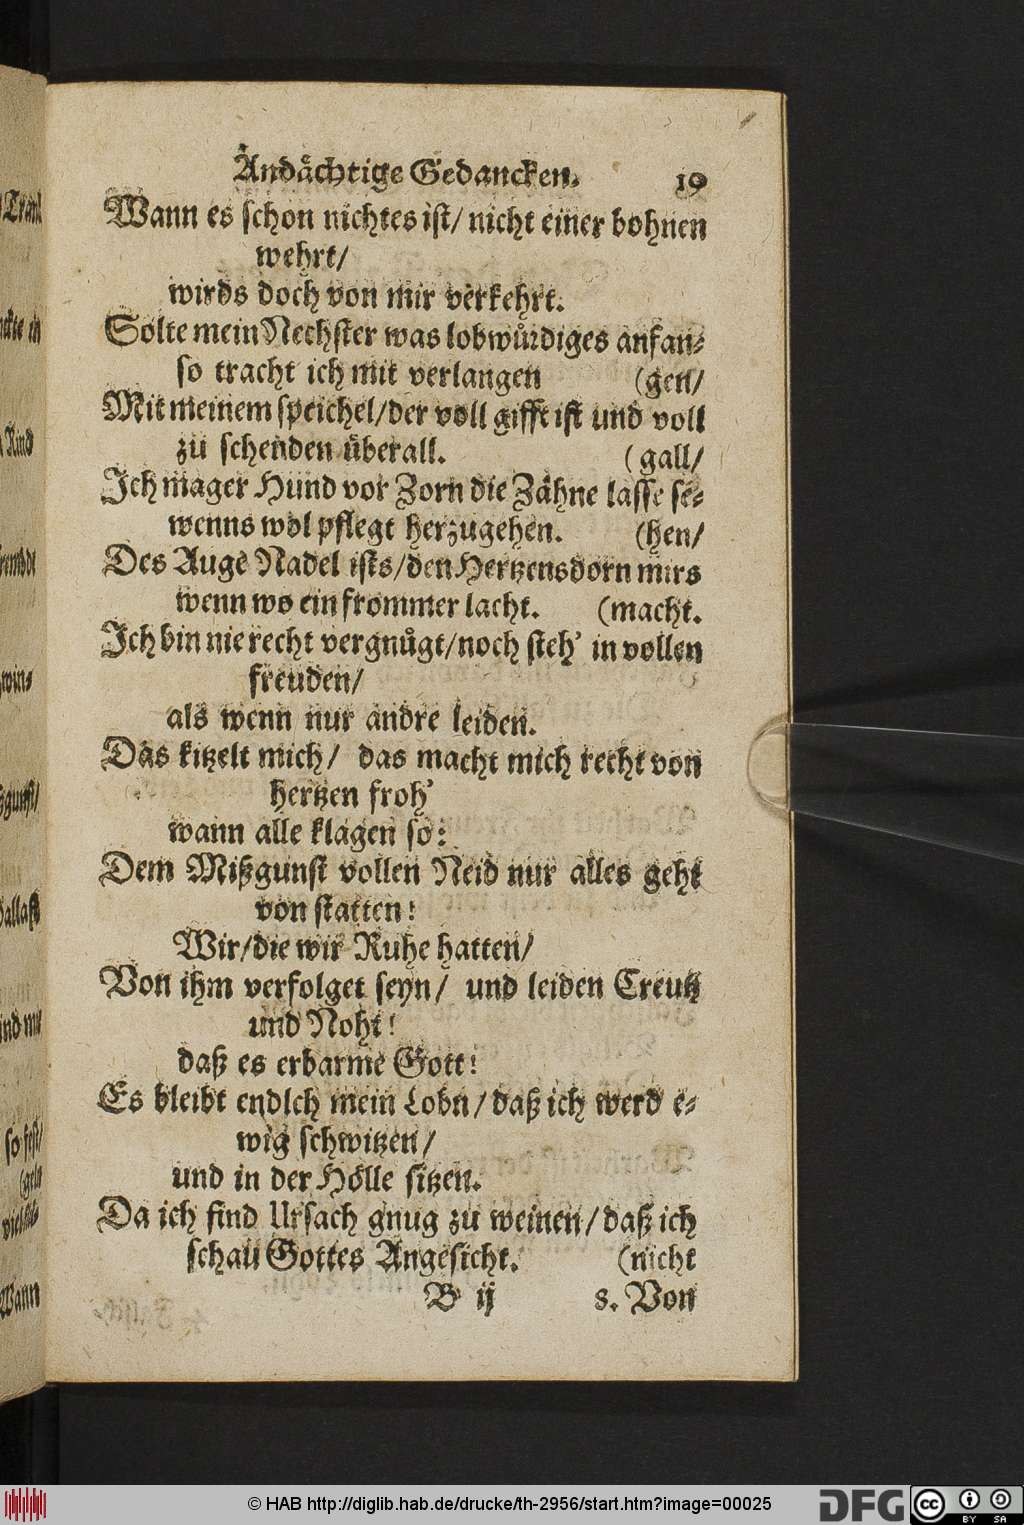 Andächtige Gedancken. 19
Wann es schon nichtes ist/ nicht einer bohnen
wehrt/
wirds doch von mir verkehrt.
Solte mein Nechster was lobwürdiges anfan-
so tracht ich mit verlangen (gen/
Mit meinem speichel/der voll gifft ist und voll
zu schenden überall. (gall/
Ich mager Hund vor Zorn die Zähne lasse se-
wenns wol pflegt herzugehen. (hen/
Des Auge Nadel ists/den Hertzensdorn mirs
wenn wo ein frommer lacht. (macht.
Ich bin nie recht vergnügt/noch steh' in vollen
freuden/
als wenn nur andre leiden.
Das kitzelt mich/ das macht mich recht von
hertzen froh'
wann alle klagen so:
Dem Mißgunst vollen Neid nur alles geht
von statten!
Wir/die wir Ruhe hatten/
Von ihm verfolget seyn/ und leiden Creutz
und Noht!
daß es erbarme Gott!
Es bleibt endlch mein Lohn/daß ich werd e-
wig schwitzen/
und in der Hölle sitzen.
Da ich find Ursach gnug zu weinen/daß ich
schau Gottes Angesicht. (nicht
B ij 8. Von
© HAB http://diglib.hab.de/drucke/th-2956/start.htm?image=00025
DFG
cc BY SA